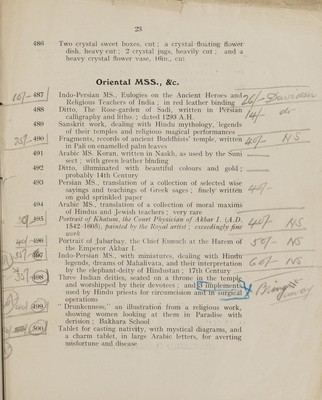 28
486 Two crystal sweet boxes, cut; a crystal floating flower
dish, heavy cut; 2 crystal jugs, heavily cut; and a
heavy crystal flower vase, 16in., cut
Oriental MSS., &c.
10/- 487 Indo-Persian MS., Eulogies on the Ancient Heroes and
Religious Teachers of India; in red leather binding
488 Ditto, The Rose-garden of Sadi, written in Persian
calligraphy and litho.; dated 1293 A.H. 14/- do
489 Sanskrit work, dealing with Hindu mythology, legends
of their temples and religious magical performances
490 Fragments, records of ancient Buddhists' temple, written 40/- NS
in Pali on enamelled palm leaves
491 Arabic MS. Koran, written in Naskh, as used by the Suni
sect; with green leather binding
492 Ditto, illuminated with beautiful colours and gold;
probably 14th Century
493 Persian MS., translation of a collection of selected wise
sayings and teachings of Greek sages; finely written 40/-
on gold sprinkled paper
494 Arabic MS., translation of a collection of moral maxims
of Hindus and Jewish teachers; very rare
495 Portrait of Khatum, the Court Physician of Akbar I. (A.D. 40/- NS
1542-1605), painted by the Royal artist; exceedingly fine
work
496 Portrait of Jabarbay, the Chief Eunuch at the Harem of 50/- NS
the Emperor Akbar I.
497 Indo-Persian MS., with miniatures, dealing with Hindu 60/- NS
legends, dreams of Mahalivata, and their interpretation
by the elephant-deity of Hindustan; 17th Century
498 Three Indian deities, seated on a throne in the temple
and worshipped by their devotees; and 3 implements
used by Hindu priests for circumcision and in surgical
operations
499 "Drunkenness," an illustration from a religious work,
showing women looking at them in Paradise with
derision; Bukhara School
500 Tablet for casting nativity, with mystical diagrams, and
a charm tablet, in large Arabic letters, for averting
misfortune and disease